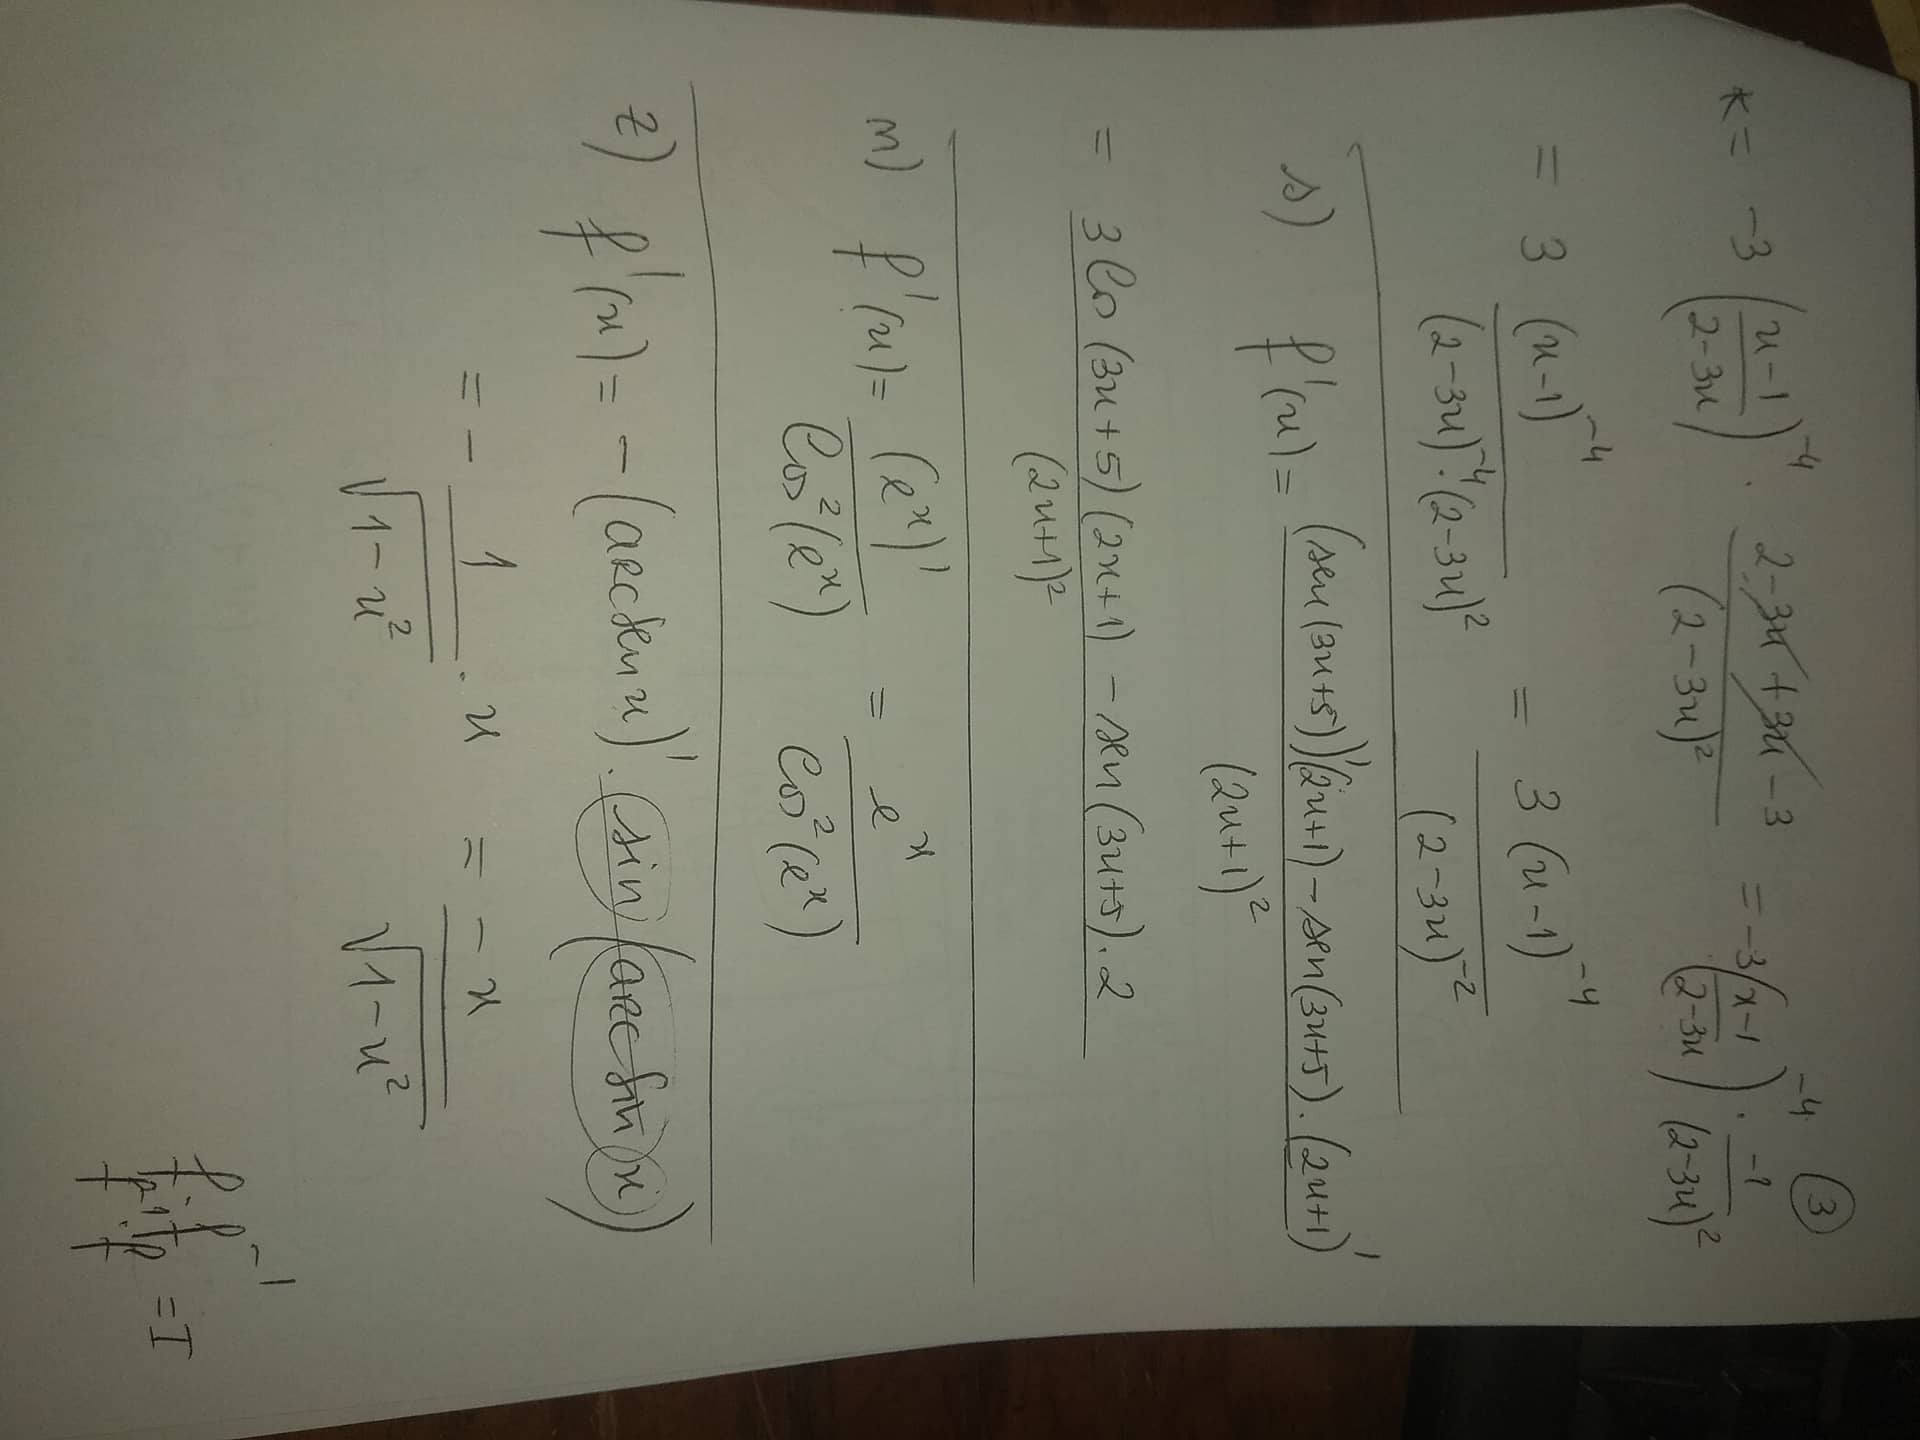 ③
* = -3 ((x-1)/(2-3x))^-4 · (2-3x+3x-3)/(2-3x)^2 = -3 ((x-1)/(2-3x))^-4 · (-1)/(2-3x)^2
= 3 (x-1)^-4/((2-3x)^-4 · (2-3x)^2) = 3(x-1)^-4/(2-3x)^-2
s) f'(x) = ((sen(3x+5))'(2x+1) - sen(3x+5) · (2x+1)')/(2x+1)^2
= (3 Cos(3x+5)(2x+1) - sen(3x+5) · 2)/(2x+1)^2
n) f'(x) = (e^x)'/Cos^2(e^x) = e^x/Cos^2(e^x)
z) f'(x) = -(arcsen x)' · sin(arcsin x)
= - 1/√(1-x^2) · x = -x/√(1-x^2)
f · f^-1
f^-1 · f = I